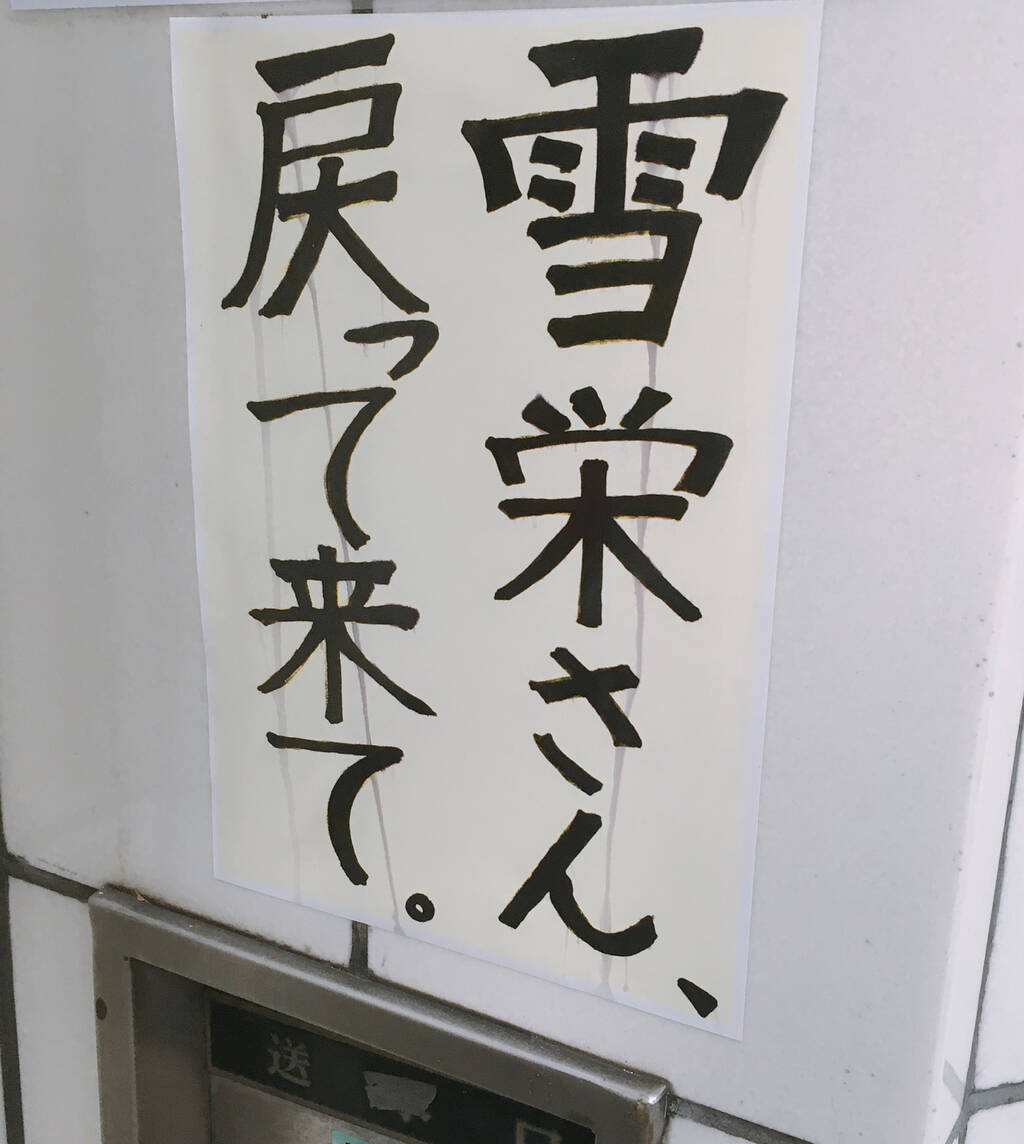 雪栄さん、
戻って来て。
送
口